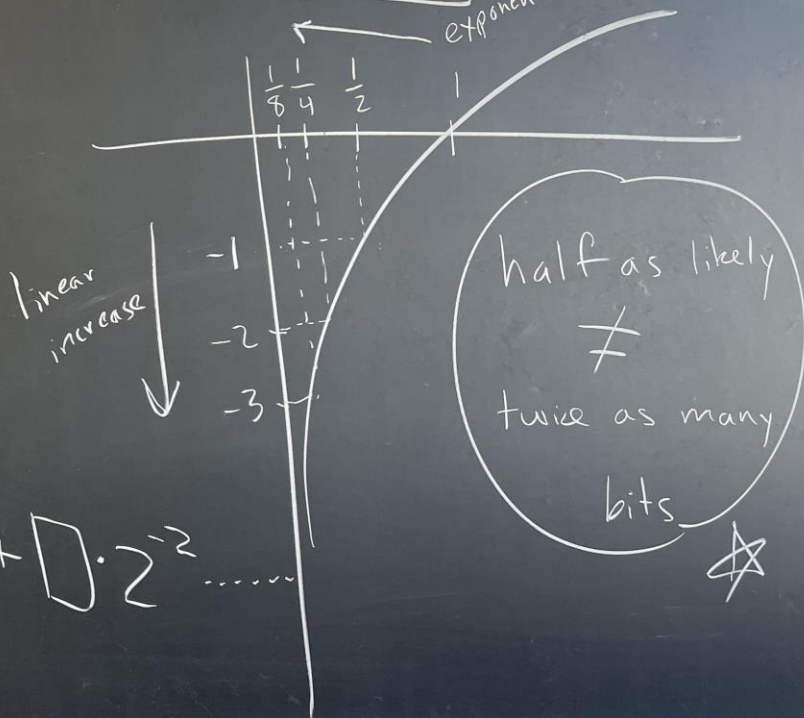 exponen
1/8 1/4 1/2 1
-1
-2
-3
linear
increase
half as likely
≠
twice as many
bits
D·2⁻²